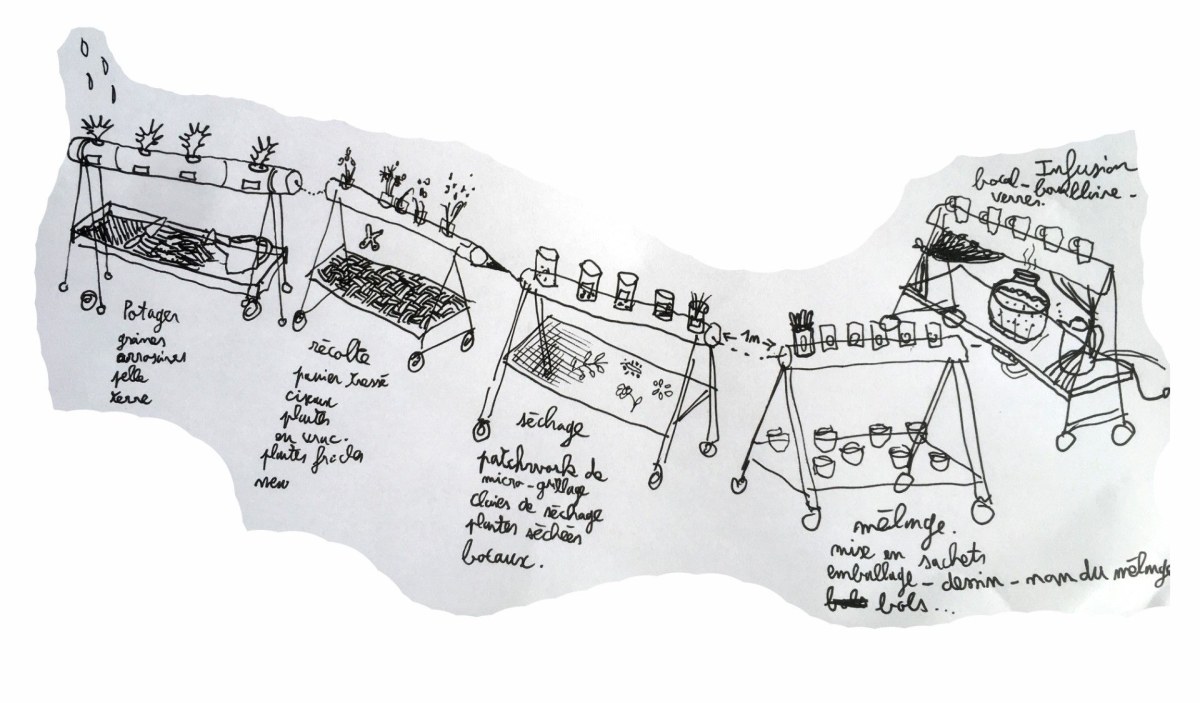 Potager
graines
pelle
terre
récolte
panier tressé
ciseaux
plantes
en vrac.
plantes
séchage
patchwork de
micro-grillage
claies de séchage
plantes séchées
bocaux.
1m
mélange.
mise en sachets
emballage - dessin - nom du mélange
bols...
Infusion
bocal - bouilloire -
verres.